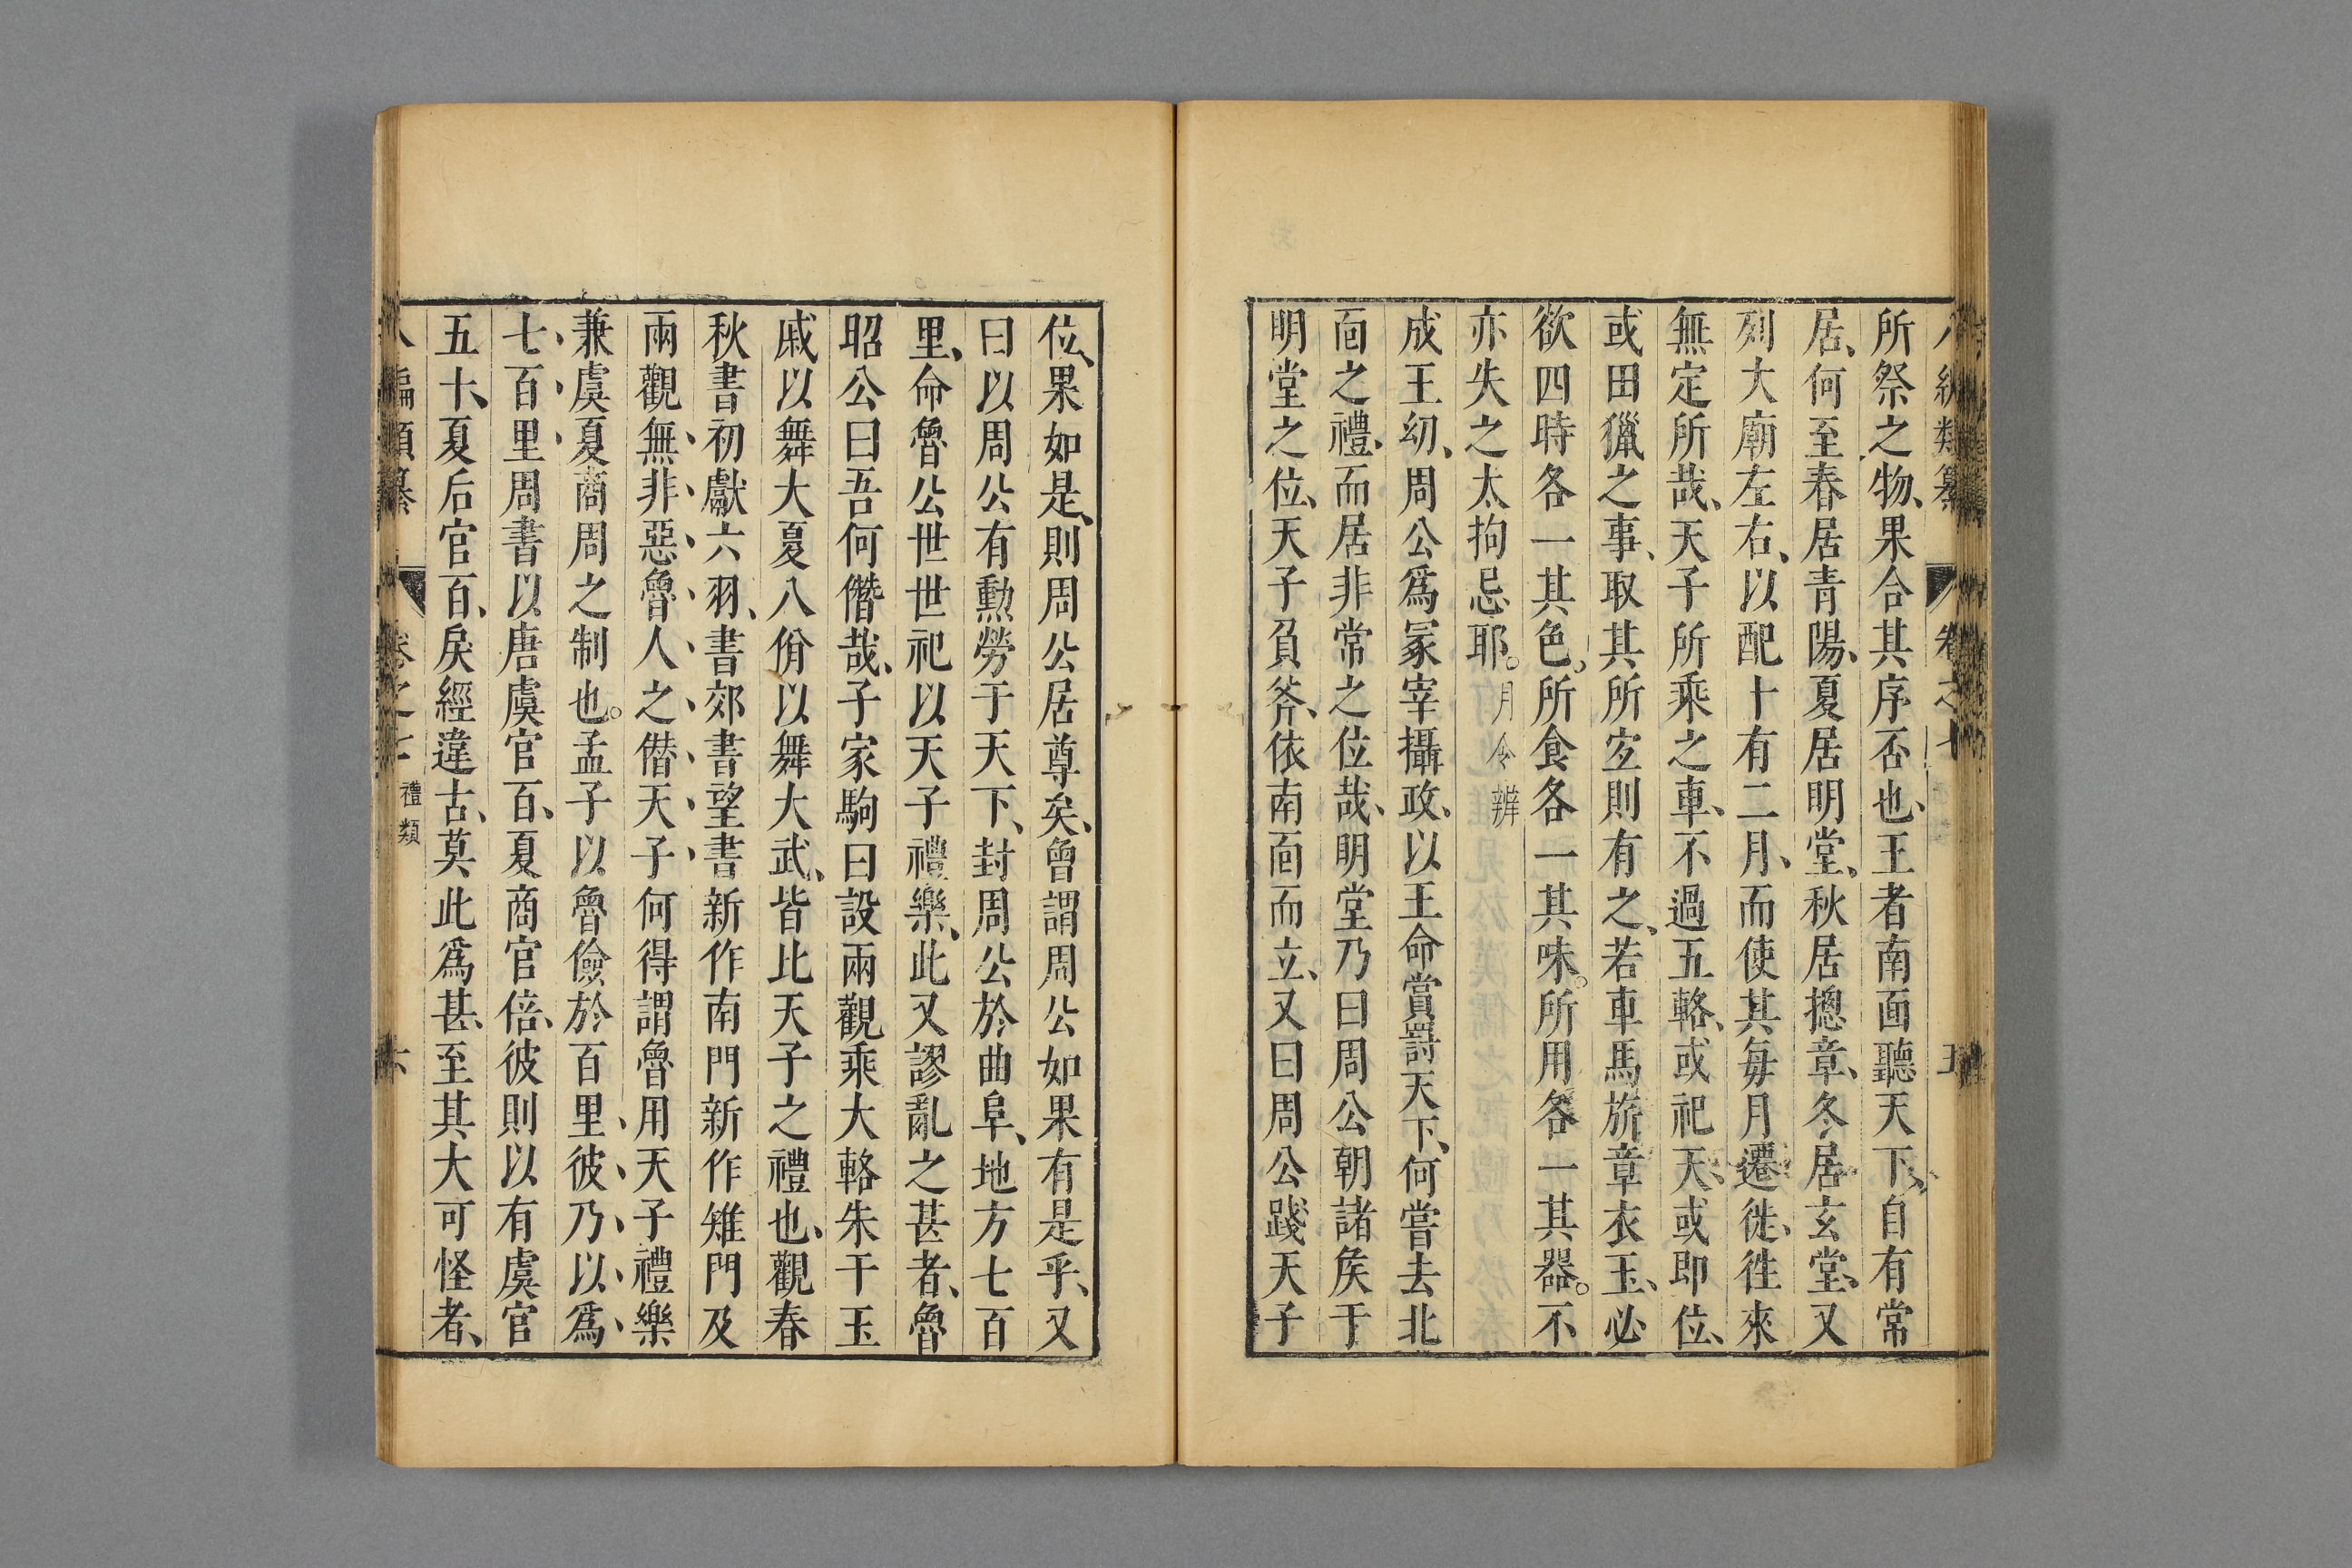 所祭之物、果合其序否也、王者南面聽天下、自有常
居、何至春居青陽、夏居明堂、秋居摠章、冬居玄堂、又
列大廟左右、以配十有二月、而使其每月遷徙、徃來
無定所哉、天子所乘之車、不過五輅、或祀天、或即位、
或田獵之事、取其所宐則有之、若車馬旂章衣玉、必
欲四時各一其色。所食各一其味。所用各一其器。不
亦失之太拘忌耶。月令辨
成王幼、周公爲冢宰攝政、以王命賞罸天下、何嘗去北
面之禮、而居非常之位哉、明堂乃曰周公朝諸矦于
明堂之位、天子負斧、依南面而立、又曰周公踐天子
位、果如是、則周公居尊矣、曾謂周公如果有是乎、又
曰以周公有勲勞于天下、封周公於曲阜、地方七百
里、命魯公世世祀以天子禮樂、此又謬亂之甚者、魯
昭公曰吾何僭哉、子家駒曰設兩觀乘大輅朱干玉
戚以舞大夏八佾以舞大武、皆比天子之禮也、觀春
秋書初獻六羽、書郊書望書新作南門新作雉門及
兩觀、無非惡魯人之僣天子何得謂魯用天子禮樂
兼虞夏商周之制也。孟子以魯儉於百里、彼乃以爲
七百里周書以唐虞官百、夏商官倍、彼則以有虞官
五十、夏后官百、戾經違古、莫此爲甚、至其大可怪者、
八編類纂 卷之七 禮類 六